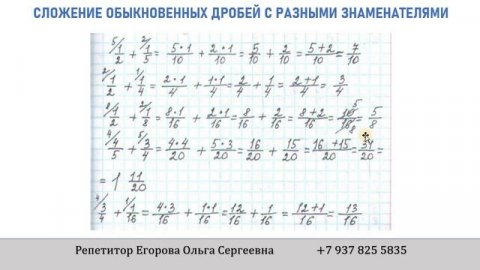 СЛОЖЕНИЕ ОБЫКНОВЕННЫХ ДРОБЕЙ С РАЗНЫМИ ЗНАМЕНАТЕЛЯМИ
5/1/2 + 2/1/5 = 5·1/10 + 2·1/10 = 5/10 + 2/10 = 5+2/10 = 7/10
2/1/2 + 1/1/4 = 2·1/4 + 1·1/4 = 2/4 + 1/4 = 2+1/4 = 3/4
8/1/2 + 2/1/8 = 8·1/16 + 2·1/16 = 8/16 + 2/16 = 8+2/16 = 10/16 5/8 = 5/8
4/4/5 + 5/3/4 = 4·4/20 + 5·3/20 = 16/20 + 15/20 = 16+15/20 = 31/20 =
= 1 11/20
4/3/4 + 1/1/16 = 4·3/16 + 1·1/16 = 12/16 + 1/16 = 12+1/16 = 13/16
Репетитор Егорова Ольга Сергеевна +7 937 825 5835